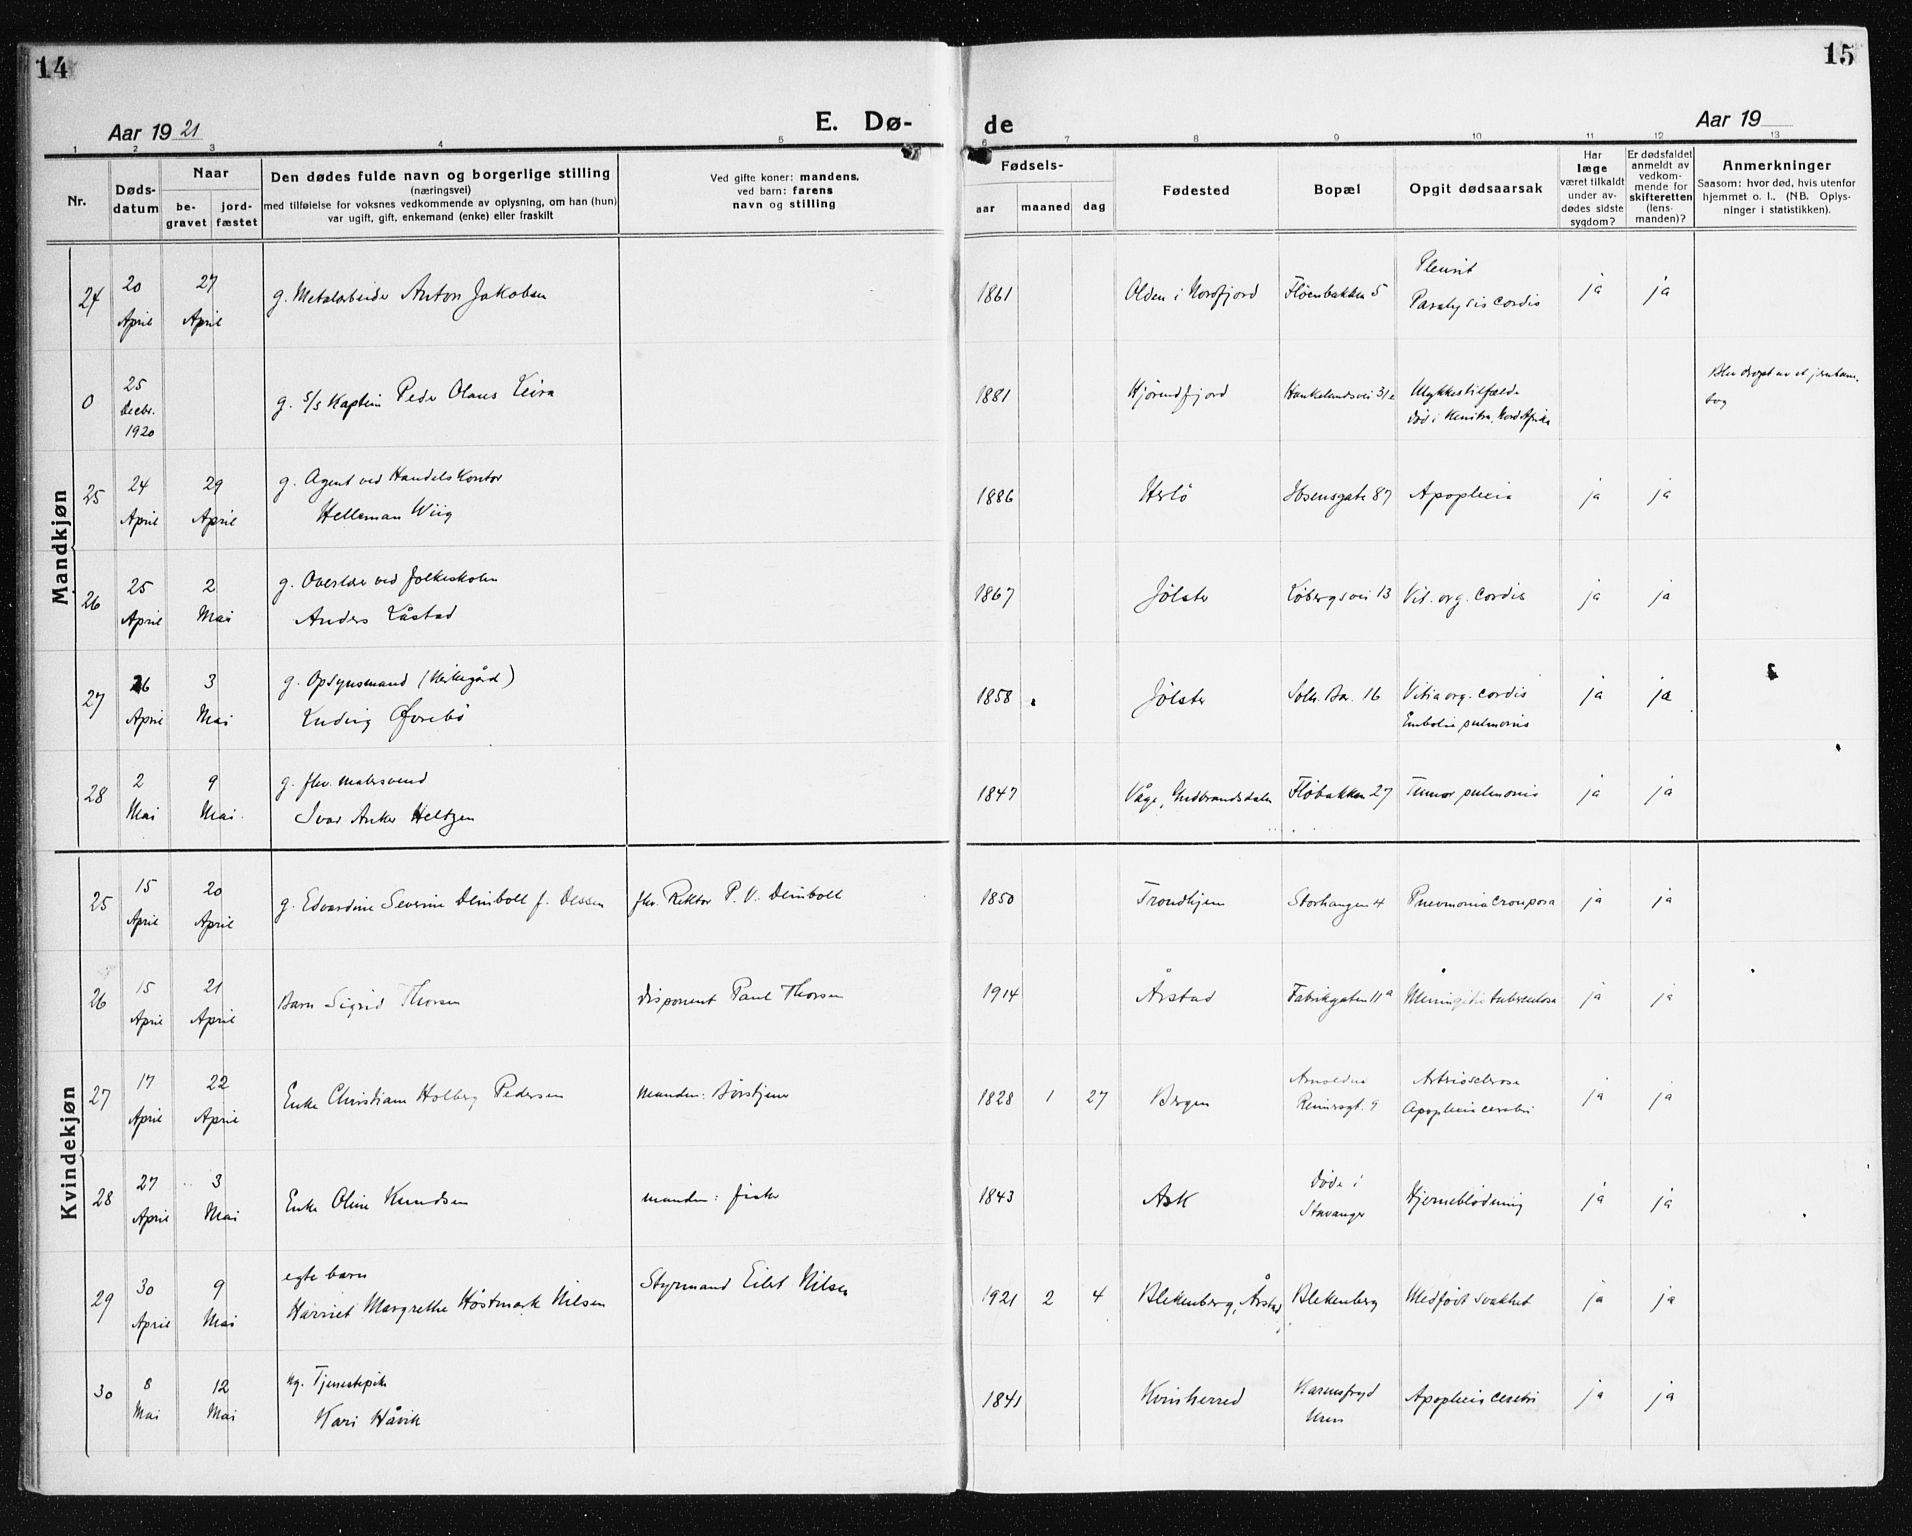 14
15
Aar 1921
E. Dø-
de
Aar 19
1 2 3 4 5 6 7 8 9 10 11 12 13
Nr.
Døds-
datum
Naar
be-
gravet
jord-
fæstet
Den dødes fulde navn og borgerlige stilling
(næringsvei)
med tilføielse for voksnes vedkommende av oplysning, om han (hun)
var ugift, gift, enkemand (enke) eller fraskilt
Ved gifte koner: mandens,
ved barn: farens
navn og stilling
Fødsels-
aar
maaned
dag
Fødested
Bopæl
Opgit dødsaarsak
Har
læge
været tilkaldt
under av-
dødes sidste
sygdom?
Er dødsfaldet
anmeldt av
vedkom-
mende for
skifteretten
(lens-
manden)?
Anmerkninger
Saasom: hvor død, hvis utenfor
hjemmet o. l., (NB. Oplys-
ninger i statistikken).
Mandkjøn
24 20 April 27 April g. Metalarbeider Anton Jakobsen 1861 Olden i Nordfjord Fløenbakken 5 Pleurit
Paralysis cordis ja ja
0 25 Decbr. 1920 g. s/s Kaptein Peder Olaus Leira 1881 Hjørundfjord Ulykkestilfælde
død i Kenitra, Nord Afrika
Blev dræpt av et jernban-
tog
25 24 April 29 April g. Agent ved Handelskontor
Helleman Wiig 1886 Herlö Ibsensgate 87 Apoplexia ja ja
26 25 April 2 Mai g. Overlærer ved Folkeskolen
Anders Låstad 1867 Jølster Løbergsvei 13 Vit. org. cordis ja ja
27 26 April 3 Mai g. Opsynsmand (Kirkegård)
Ludvig Øvrebö 1858 Jølster 16 Vitia org. cordis
Embolia pulmonis ja ja
28 2 Mai 9 Mai g. fhv. malersvend
Ivar Anker Heltzen 1847 Våge, Gudbrandsdalen Fløbakken 27 Tumor pulmonis ja ja
Kvindekjøn
25 15 April 20 April g. Edvardine Severine Deinboll f. Dessen fhv. Rektor P. V. Deinboll 1850 Trondhjem Storhaugen 4 Pneumonia crouposa ja ja
26 15 April 21 April Barn Sigrid Thorsen disponent Paul Thorsen 1914 Årstad Fabrikgaten 11a Meningitis tuberculosa ja ja
27 17 April 22 April Enke Christiane Holberg Pedersen manden: 1828 1 27 Bergen Arnoldus
Reimersgt. 9 Artriosclerose
Apoplexia cerebri ja ja
28 27 April 3 Mai Enke Oline Knudsen manden: fisker 1843 Ask døde i
Stavanger Hjerneblødning ja ja
29 30 April 9 Mai egte barn
Harriet Margrethe Höstmark Nilsen Styrmand Eilert Nilsen 1921 2 4 Blekenberg, Årstad Blekenberg Medfödt svakhet ja ja
30 8 Mai 12 Mai ug. Tjenestepike
Kari Håvik 1841 Kvinherred Apoplexia cerebri ja ja